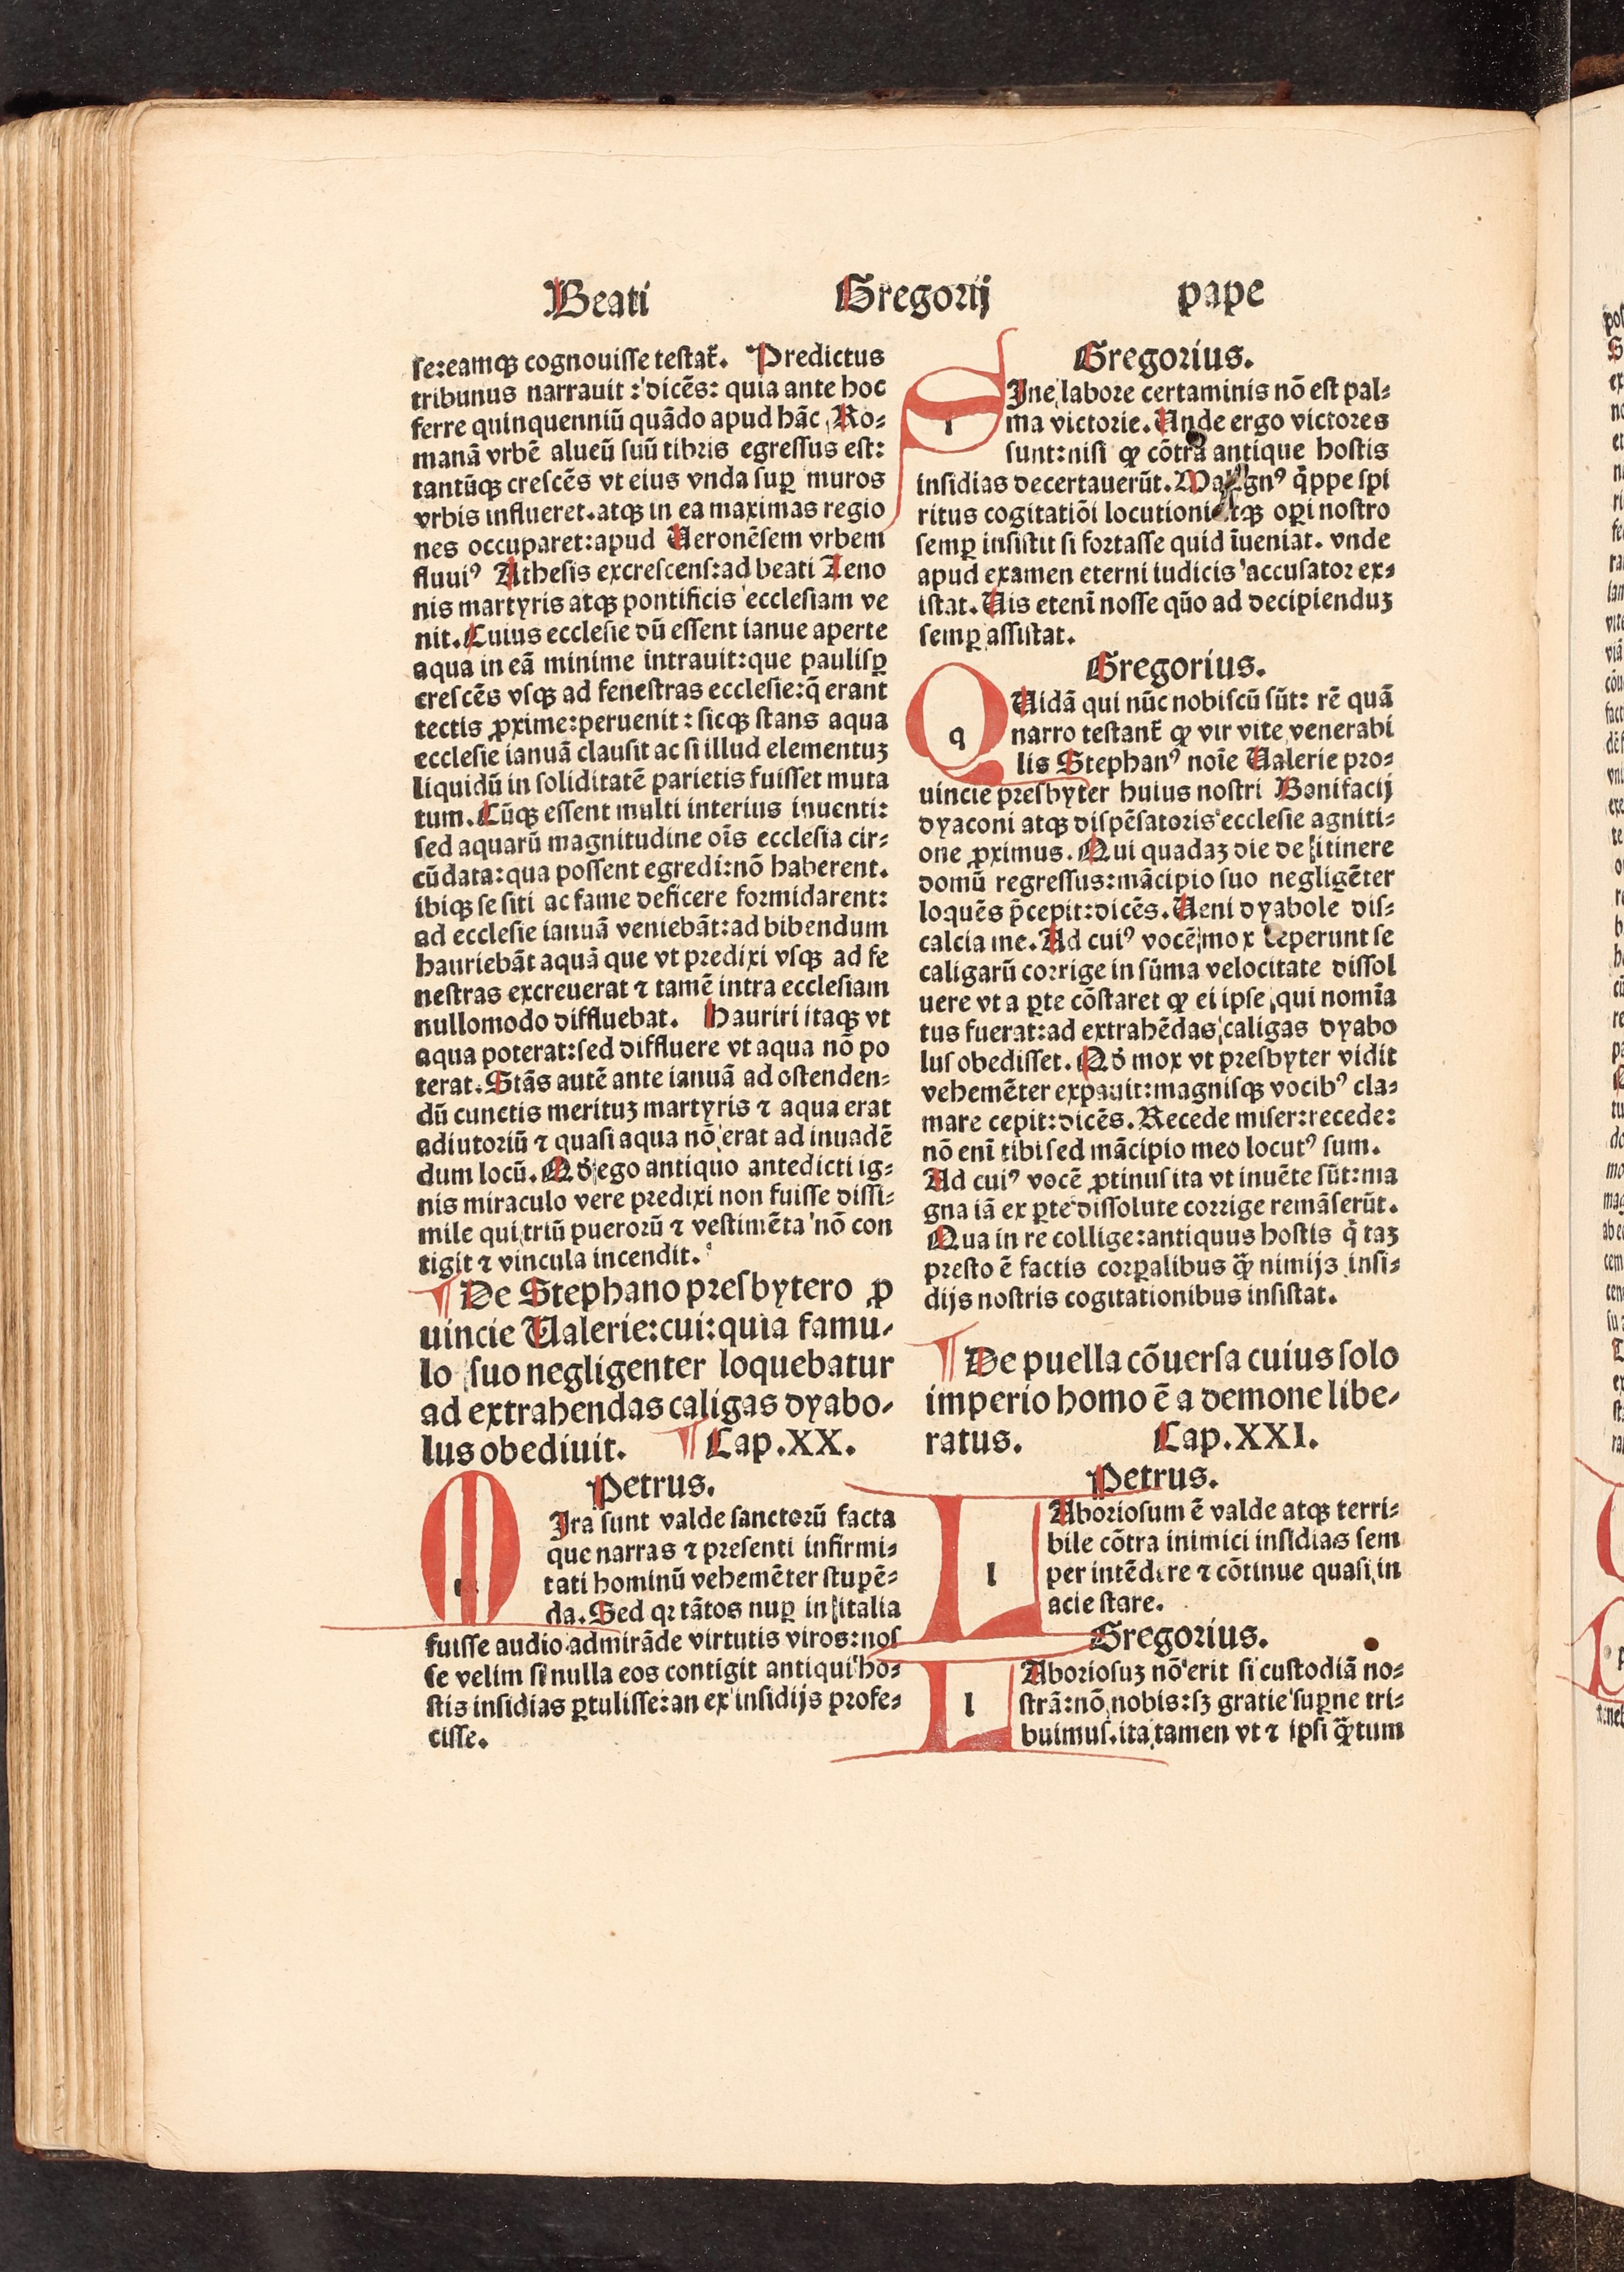 Beati Gregorij pape
se:eamqꝫ cognouisse testat᷑. Predictus
tribunus narrauit : dicēs: quia ante hoc
ferre quinquenniū quādo apud hāc Ro⸗
manā vrbē alueū suū tibris egressus est:
tantūqꝫ crescēs vt eius vnda suꝑ muros
vrbis influeret.atqꝫ in ea maximas regio
nes occuparet:apud Ueronēsem vrbem
fluuiꝰ Athesis excrescens:ad beati Zeno
nis martyris atqꝫ pontificis ecclesiam ve
nit. Cuius ecclesie dū essent ianue aperte
aqua in eā minime intrauit:que paulisꝑ
crescēs vsqꝫ ad fenestras ecclesie:q̄ erant
tectis ꝓxime:peruenit : sicqꝫ stans aqua
ecclesie ianuā clausit ac si illud elementuꝫ
liquidū in soliditatē parietis fuisset muta
tum. Cūqꝫ essent multi interius inuenti:
sed aquarū magnitudine oīs ecclesia cir⸗
cūdata:qua possent egredi:nō haberent.
ibiqꝫ se siti ac fame deficere formidarent:
ad ecclesie ianuā veniebāt:ad bibendum
hauriebāt aquā que vt predixi vsqꝫ ad fe
nestras excreuerat ⁊ tamē intra ecclesiam
nullomodo diffluebat. Hauriri itaqꝫ vt
aqua poterat:sed diffluere vt aqua nō po
terat. Stās autē ante ianuā ad ostenden⸗
dū cunctis merituꝫ martyris ⁊ aqua erat
adiutoriū ⁊ quasi aqua nō erat ad inuadē
dum locū. Qd̓ ego antiquo antedicti ig⸗
nis miraculo vere predixi non fuisse dissi⸗
mile qui triū puerorū ⁊ vestimēta nō con
tigit ⁊ vincula incendit.
¶ De Stephano presbytero ꝓ
uincie Ualerie:cui:quia famu⸗
lo suo negligenter loquebatur
ad extrahendas caligas dyabo⸗
lus obediuit. ¶ Cap.XX.
Petrus.
MIra sunt valde sanctorū facta
que narras ⁊ presenti infirmi⸗
tati hominū vehemēter stupē⸗
da. Sed qꝛ tātos nuꝑ in italia
fuisse audio admirāde virtutis viros:nos
se velim si nulla eos contigit antiqui ho⸗
stis insidias ꝑtulisse:an ex insidijs profe⸗
cisse.
Gregorius.
SIne labore certaminis nō est pal⸗
ma victorie. Unde ergo victores
sunt:nisi qꝫ cōtra antique hostis
insidias decertauerūt. Malignꝰ q̄ppe spi
ritus cogitatiōi locutioni atqꝫ oꝑi nostro
semꝑ insistit si fortasse quid īueniat. vnde
apud examen eterni iudicis accusator ex⸗
istat. Uis etenī nosse qūo ad decipienduꝫ
semꝑ assistat.
Gregorius.
QUidā qui nūc nobiscū sūt: rē quā
narro testant᷑ qꝫ vir vite venerabi
lis Stephanꝰ noīe Ualerie pro⸗
uincie presbyter huius nostri Bonifacij
dyaconi atqꝫ dispēsatoris ecclesie agniti⸗
one ꝓximus. Qui quadaꝫ die de itinere
domū regressus:mācipio suo negligēter
loquēs p̄cepit:dicēs. Ueni dyabole dis⸗
calcia me. Ad cuiꝰ vocē mox ceperunt se
caligarū corrige in sūma velocitate dissol
uere vt a ꝑte cōstaret qꝫ ei ipse qui nomīa
tus fuerat:ad extrahēdas caligas dyabo
lus obedisset. Qd̓ mox vt presbyter vidit
vehemēter expauit:magnisqꝫ vocibꝰ cla⸗
mare cepit:dicēs. Recede miser:recede:
nō enī tibi sed mācipio meo locutꝰ sum.
Ad cuiꝰ vocē ꝓtinus ita vt inuēte sūt:ma
gna iā ex ꝑte dissolute corrige remāserūt.
Qua in re collige:antiquus hostis q̄ taꝫ
presto ē factis corꝑalibus qꝫ̄ nimijs insi⸗
dijs nostris cogitationibus insistat.
¶ De puella cōuersa cuius solo
imperio homo ē a demone libe⸗
ratus. Cap.XXI.
Petrus.
LAboriosum ē valde atqꝫ terri⸗
bile cōtra inimici insidias sem
per intēdere ⁊ cōtinue quasi in
acie stare.
Gregorius.
LAboriosuꝫ nō erit si custodiā no⸗
strā:nō nobis:sꝫ gratie suꝑne tri⸗
buimus.ita tamen vt ⁊ ipsi qꝫ̄tum